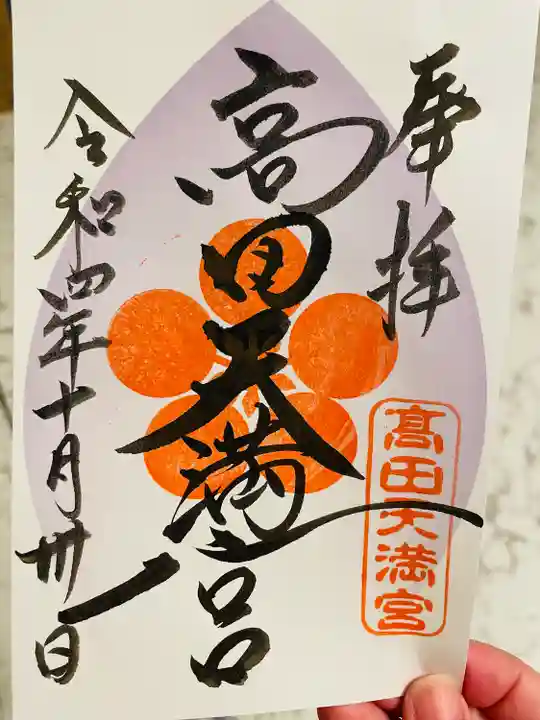 奉拝
高田天満宮
髙田天満宮
令和四年十月卅一日